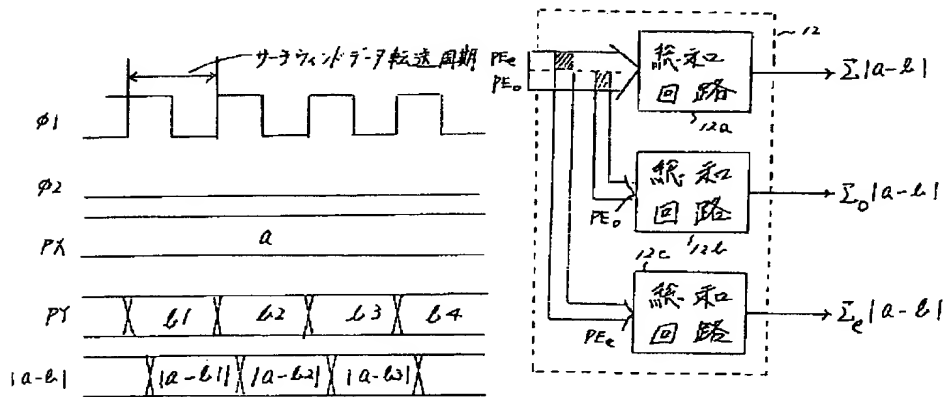 サーチウィンドデータ転送周期
φ1
φ2
PX
a
PY
b1
b2
b3
b4
|a-b|
|a-b1|
|a-b2|
|a-b3|
12
PEe
PEo
総和
回路
12a
Σ|a-b|
総和
回路
PEo
12b
Σo|a-b|
12c
総和
回路
PEe
Σe|a-b|